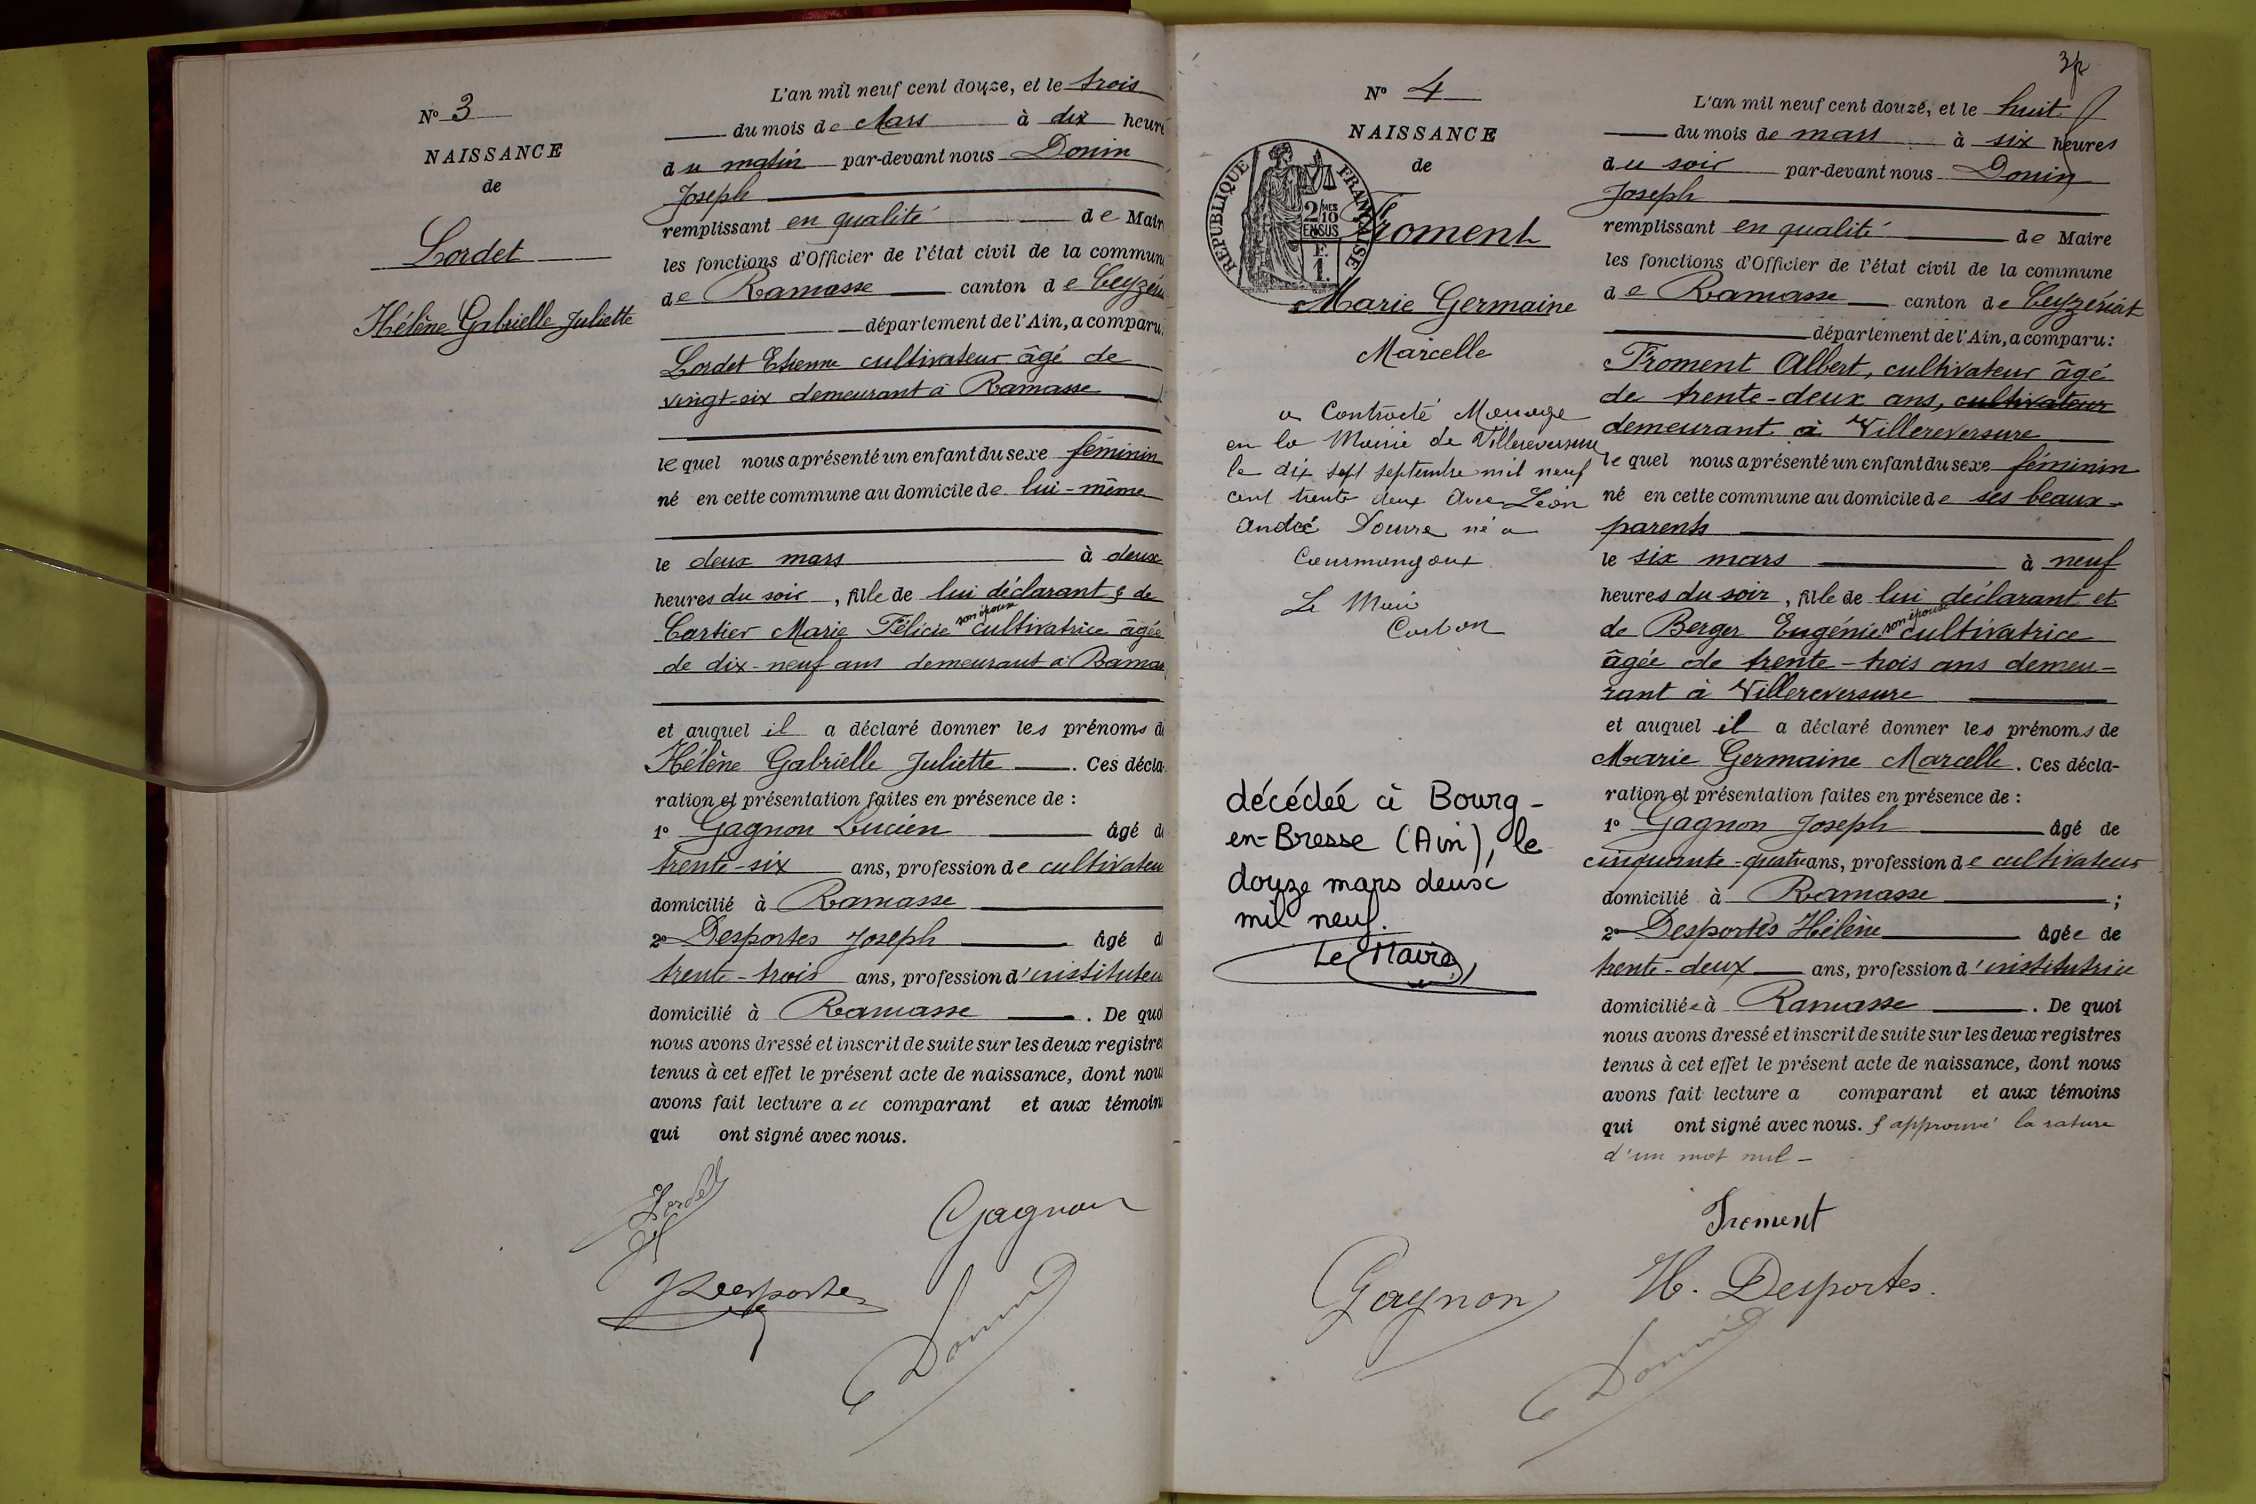 N° 3
NAISSANCE
de
Lordet
Hélène Gabrielle Juliette
L'an mil neuf cent douze, et le trois
du mois de Mars à dix heure
du matin par-devant nous Donin
Joseph
remplissant en qualité de Mair
les fonctions d'Officier de l'état civil de la commun
de Ramasse canton de Ceyzéri
département de l'Ain, a comparu
Lordet Etienne cultivateur âgé de
vingt-six demeurant à Ramasse
lequel nous a présenté un enfant du sexe féminin
né en cette commune au domicile de lui-même
le deux mars à deux
heures du soir, fille de lui déclarant & de
Cartier Marie Félicie son épouse cultivatrice âgée
de dix-neuf ans demeurant à Ramas
et auquel il a déclaré donner les prénoms d
Hélène Gabrielle Juliette. Ces décla
ration et présentation faites en présence de :
1° Gagnon Lucien âgé d
trente-six ans, profession de cultivateu
domicilié à Ramasse
2° Desportes Joseph âgé d
trente-trois ans, profession d'instituteu
domicilié à Ramasse. De quo
nous avons dressé et inscrit de suite sur les deux registre
tenus à cet effet le présent acte de naissance, dont nou
avons fait lecture au comparant et aux témoin
qui ont signé avec nous.
Lordet
Gagnon
J Desportes
Donin
3
N° 4
NAISSANCE
de
REPUBLIQUE FRANÇAISE
2/10 MES
EN SUS
F.
1.
Froment
Marie Germaine
Marcelle
a Contracté Mariage
en la Mairie de Villereversure
le dix sept septembre mil neuf
cent trente deux avec Léon
André Douvre né a
Courmangoux
Le Maire
Corbon
décédée à Bourg-
en-Bresse (Ain), le
douze mars deux
mil neuf.
Le Maire,
L'an mil neuf cent douze, et le huit
du mois de mars à six heures
du soir par-devant nous Donin
Joseph
remplissant en qualité de Maire
les fonctions d'Officier de l'état civil de la commune
de Ramasse canton de Ceyzériat
département de l'Ain, a comparu :
Froment Albert, cultivateur âgé
de trente-deux ans, cultivateur
demeurant à Villereversure
lequel nous a présenté un enfant du sexe féminin
né en cette commune au domicile de ses beaux-
parents
le six mars à neuf
heures du soir, fille de lui déclarant et
de Berger Eugénie son épouse cultivatrice
âgée de trente-trois ans demeu-
rant à Villereversure
et auquel il a déclaré donner les prénoms de
Marie Germaine Marcelle. Ces décla-
ration et présentation faites en présence de :
1° Gagnon Joseph âgé de
cinquante-quatre ans, profession de cultivateur
domicilié à Ramasse ;
2° Desportes Hélène âgée de
trente-deux ans, profession d'institutrice
domiciliée à Ramasse. De quoi
nous avons dressé et inscrit de suite sur les deux registres
tenus à cet effet le présent acte de naissance, dont nous
avons fait lecture a comparant et aux témoins
qui ont signé avec nous. & approuvé la rature
d'un mot nul -
Froment
Gagnon
H. Desportes.
Donin